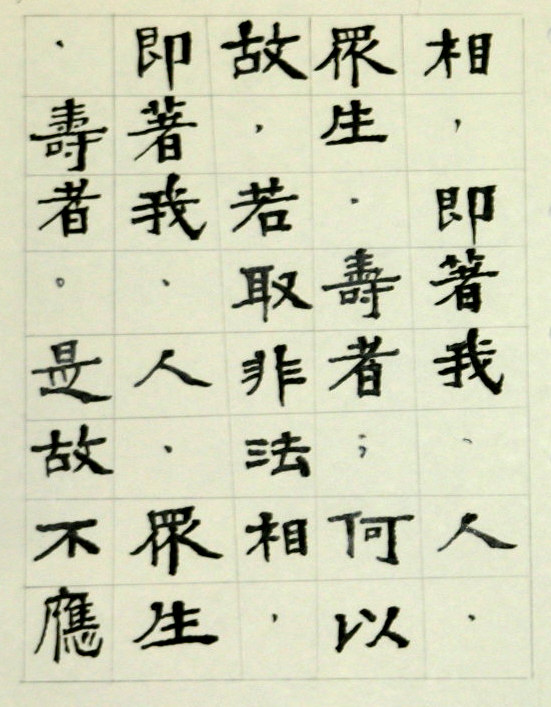 相，即著我、人、
眾生、壽者；何以
故，若取非法相，
即著我、人、眾生
、壽者。是故不應